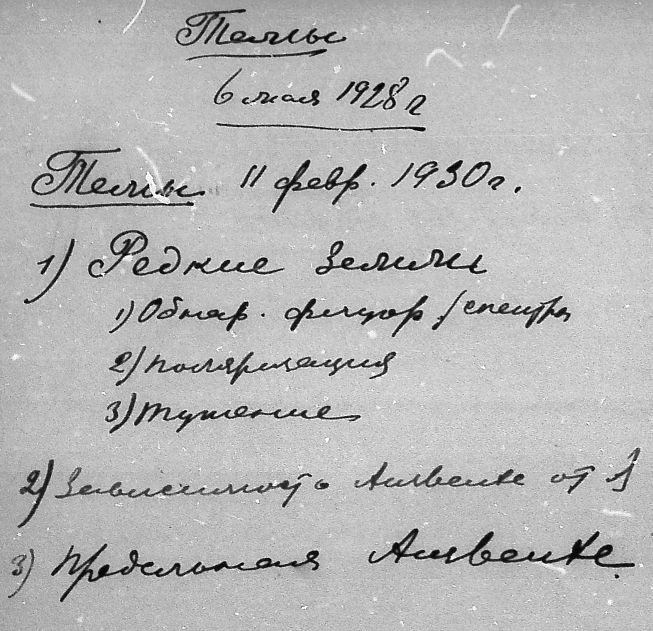 Темы
6 мая 1928 г
Темы 11 февр. 1930 г.
1) Редкие земли
1) Обнар. флуор /спектры
2) поляризация
3) тушение
2) Зависимость Ausbeute от λ
3) Предельная Ausbeute.